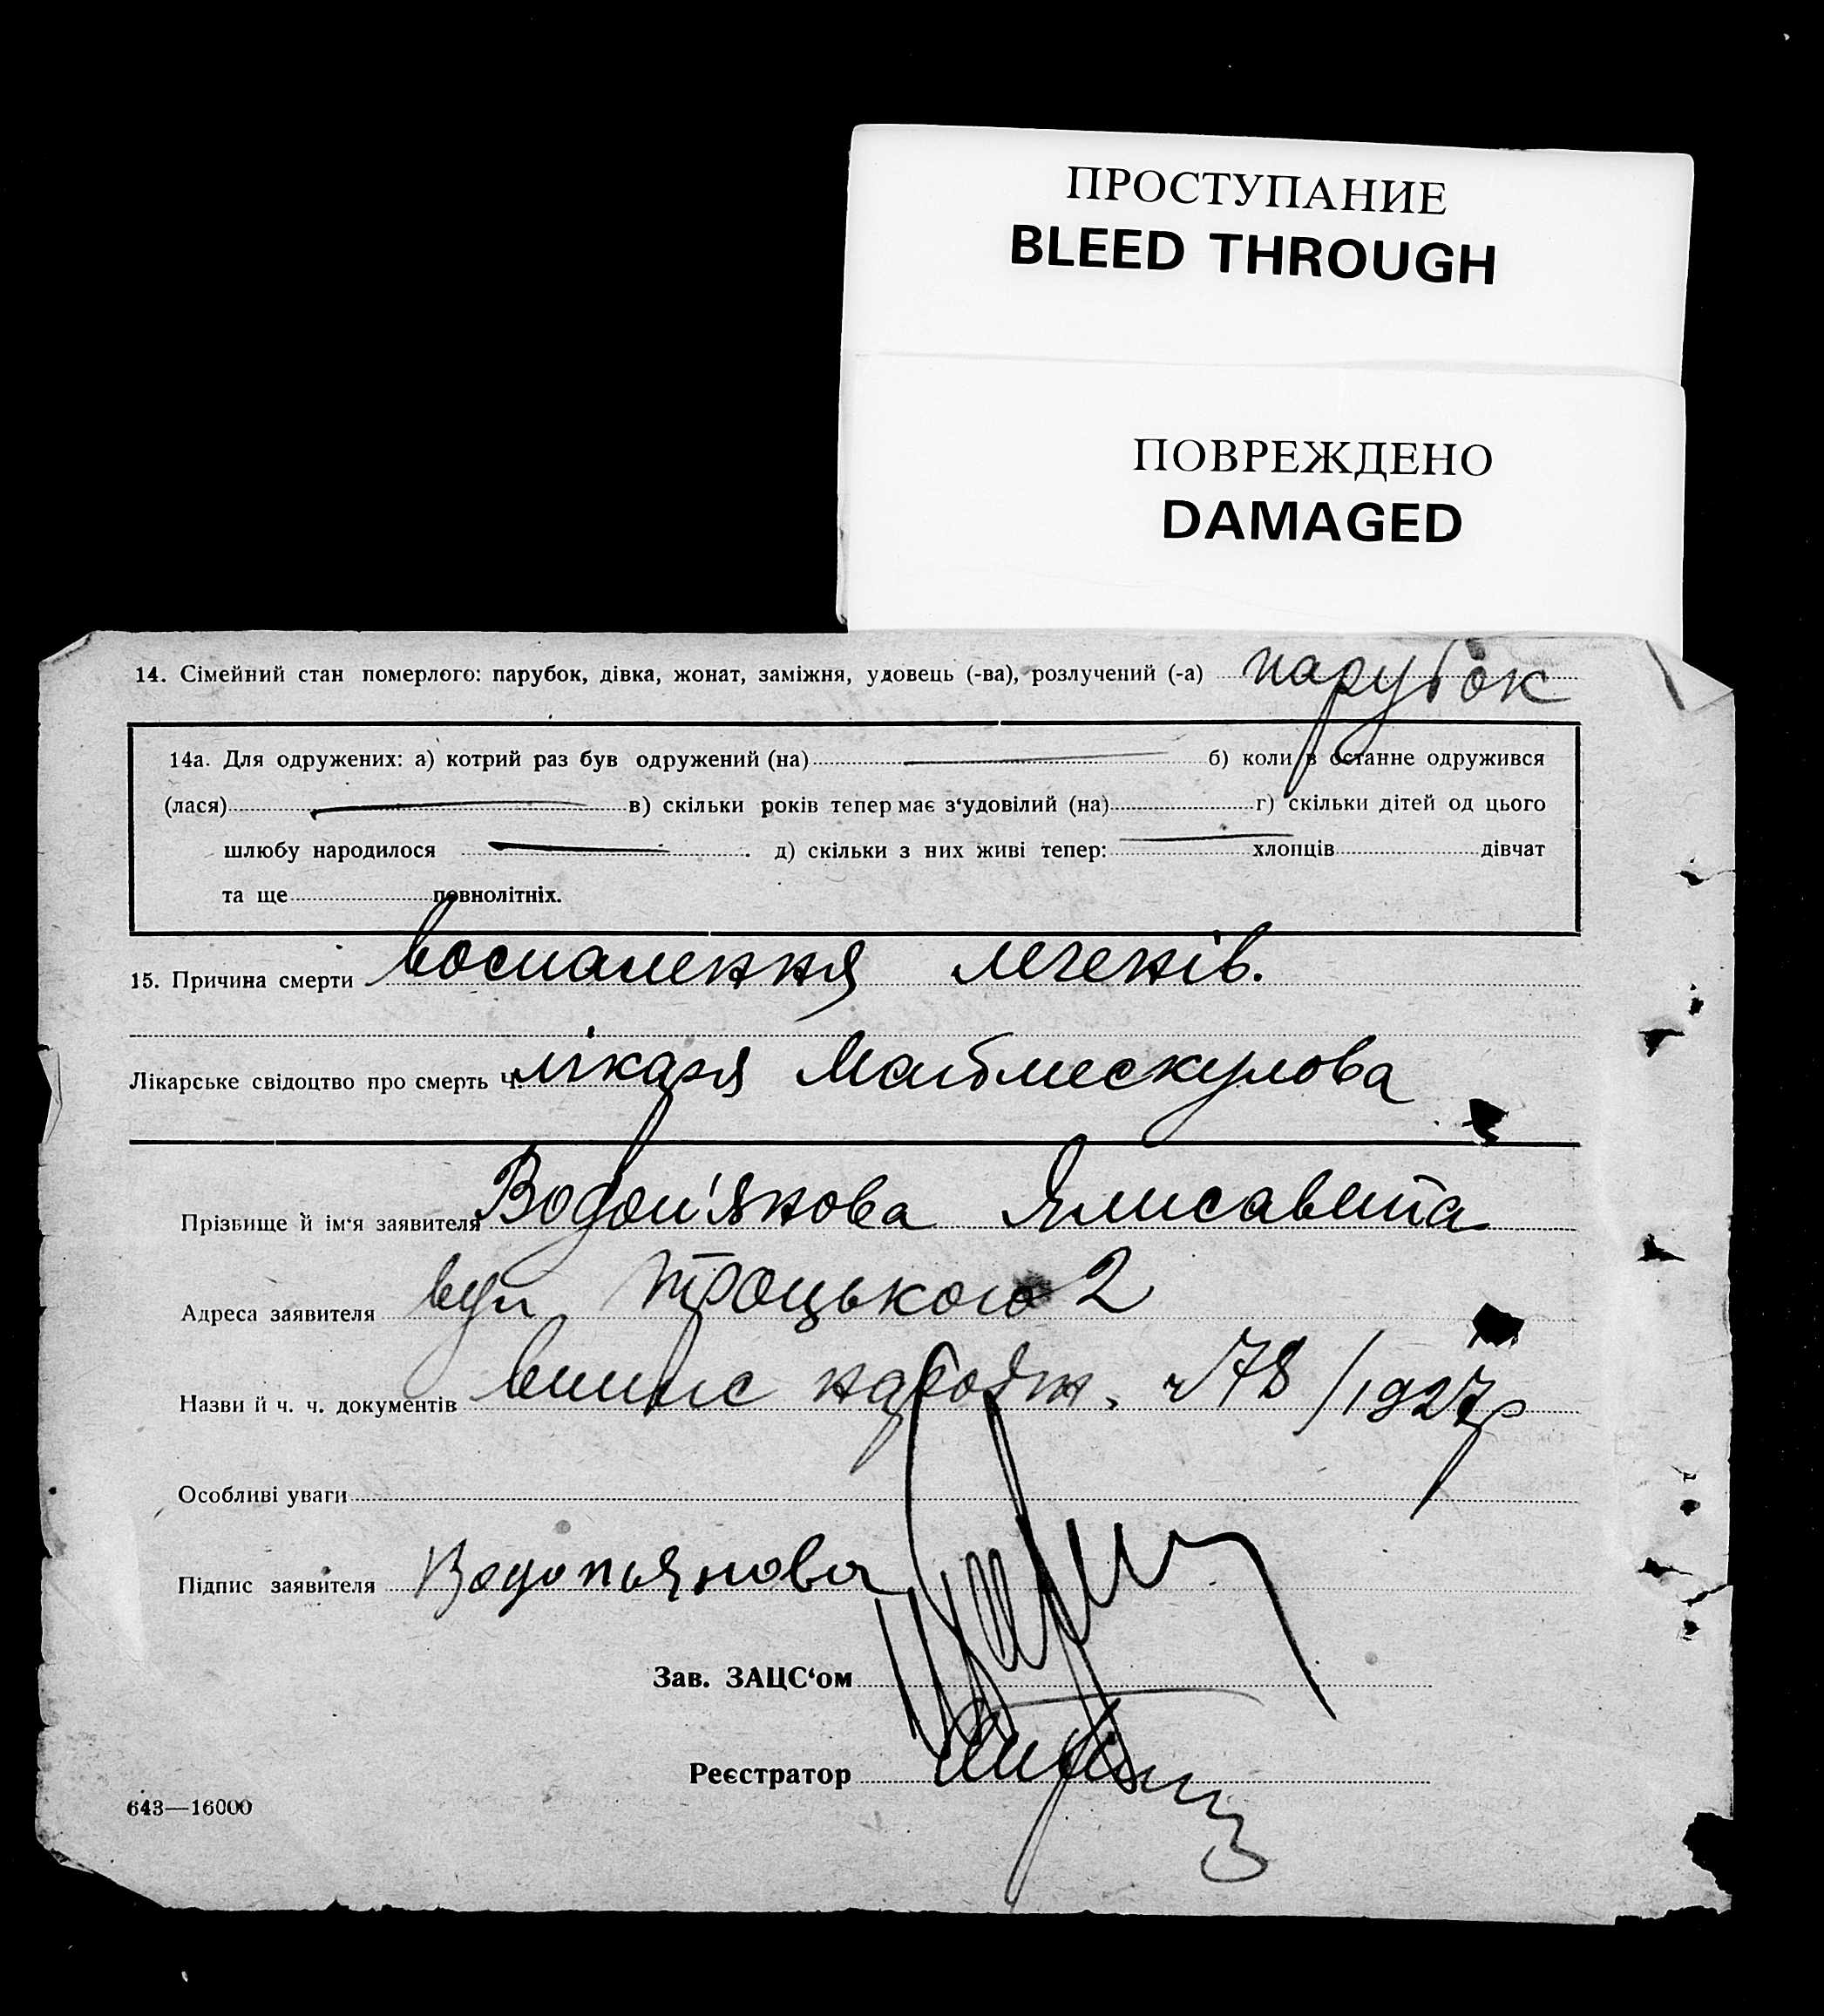 ПРОСТУПАНИЕ
BLEED THROUGH
ПОВРЕЖДЕНО
DAMAGED
14. Сімейний стан померлого: парубок, дівка, жонат, заміжня, удовець (-ва), розлучений (-а) парубок
14а. Для одружених: а) котрий раз був одружений (на) б) коли в останне одружився
(лася) в) скільки років тепер має з‘удовілий (на) г) скільки дітей од цього
шлюбу народилося д) скільки з них живі тепер: хлопців дівчат
та ще повнолітніх.
15. Причина смерти воспалення легенів.
Лікарське свідоцтво про смерть Ч. лікаря
Прізвище й ім‘я заявителя Водоп'янова Єлисавета
Адреса заявителя вул Троцького 2
Назви й ч. ч. документів випис народж. ч 78/1927р
Особливі уваги
Підпис заявителя Водопьянова
Зав. ЗАЦС‘ом
Реєстратор
643—16000